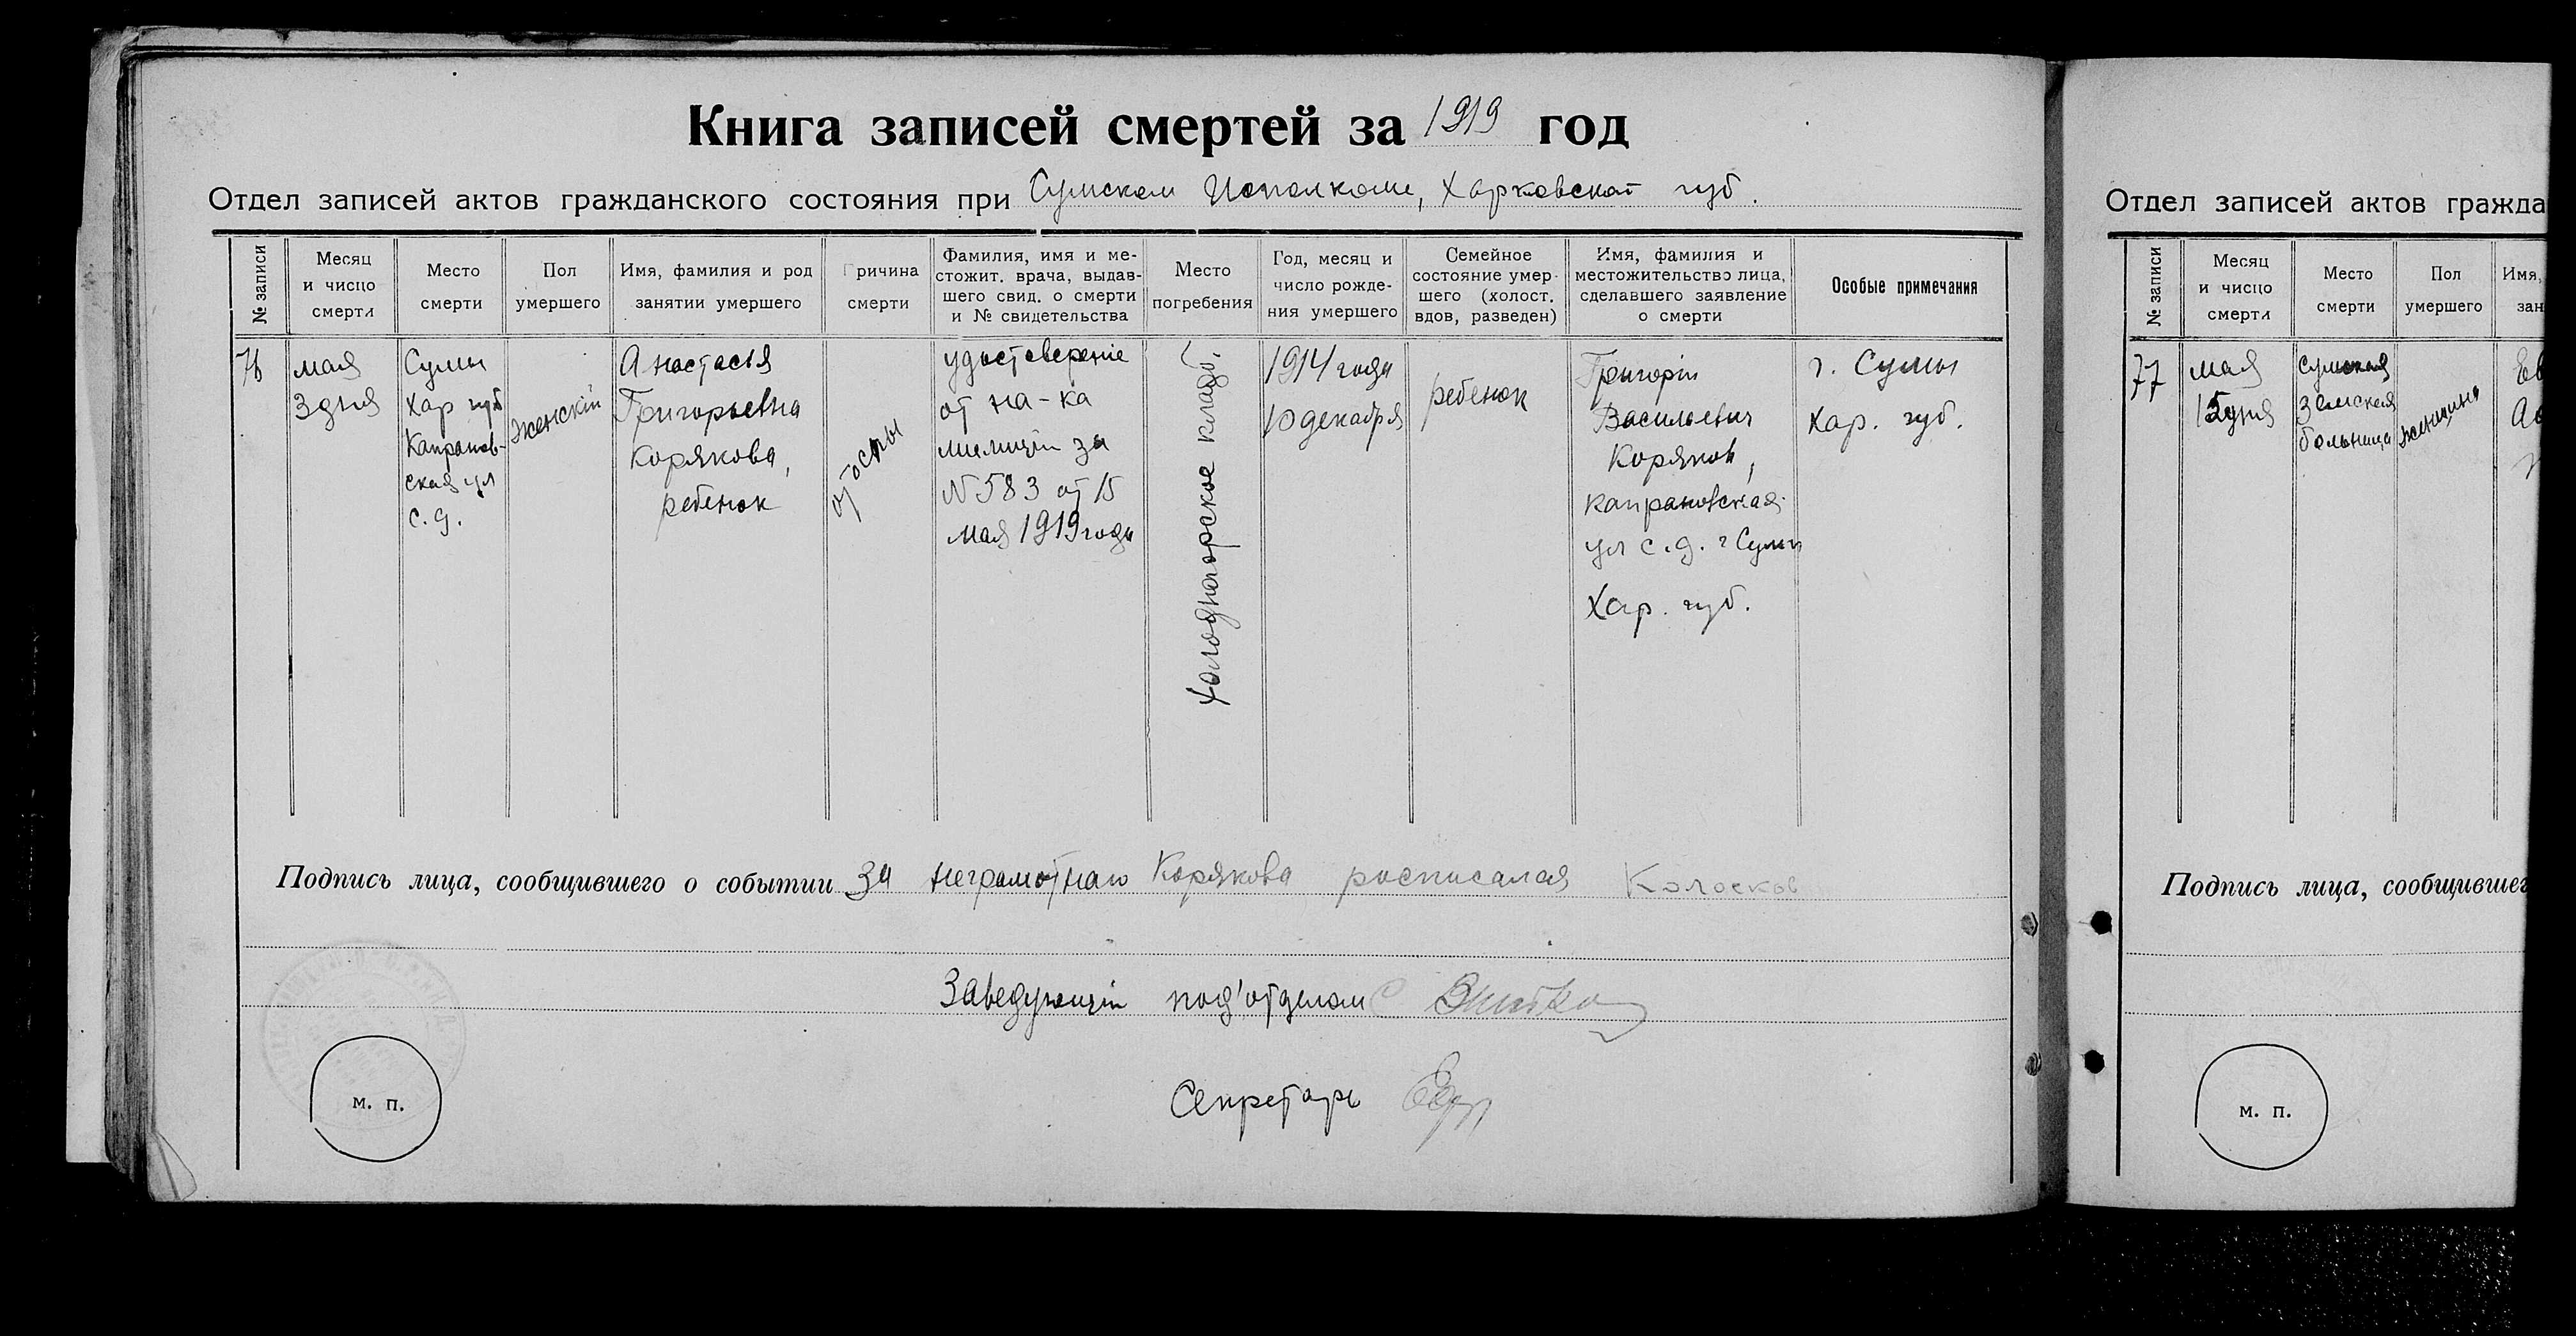 Книга записей смертей за 1919 год
Отдел записей актов гражданского состояния при Сумском Исполкоме, Харковской губ.
№ записи
Месяц
и число
смерти
Место
смерти
Пол
умершего
Имя, фамилия и род
занятии умершего
Причина
смерти
Фамилия, имя и ме-
стожит. врача, выдав-
шего свид. о смерти
и № свидетельства
Место
погребения
Год, месяц и
число рожде-
ния умершего
Семейное
состояние умер-
шего (холост.
вдов, разведен)
Имя, фамилия и
местожительство лица,
сделавшего заявление
о смерти
Особые примечания
76
мая
3 дня
Сумы
Хар губ
Капранов-
ская ул
с. д.
женскiй
Анастасья
Григорьевна
Корякова,
ребенок
от оспы
удостоверенiе
от на-ка
милицiи за
N 583 от 15
мая 1919 года
Холодногорское кладб.
1914 года
10 декабря
ребенок
Григорiй
Васильевич
Коряков,
Капрановская
ул с. д. г Сумы
Хар. губ.
г. Сумы
Хар. губ.
Подпись лица, сообщившего о событии за неграмотнаго Корякова росписался Колосков
Заведующiй под'отделом
Секретарь
м. п.
Отдел записей актов гражда
№ записи
Месяц
и число
смерти
Место
смерти
Пол
умершего
Имя,
зан
77
мая
15 дня
Сумская
Земская
больница
женщина
Ев
Подпись лица, сообщившег
м. п.